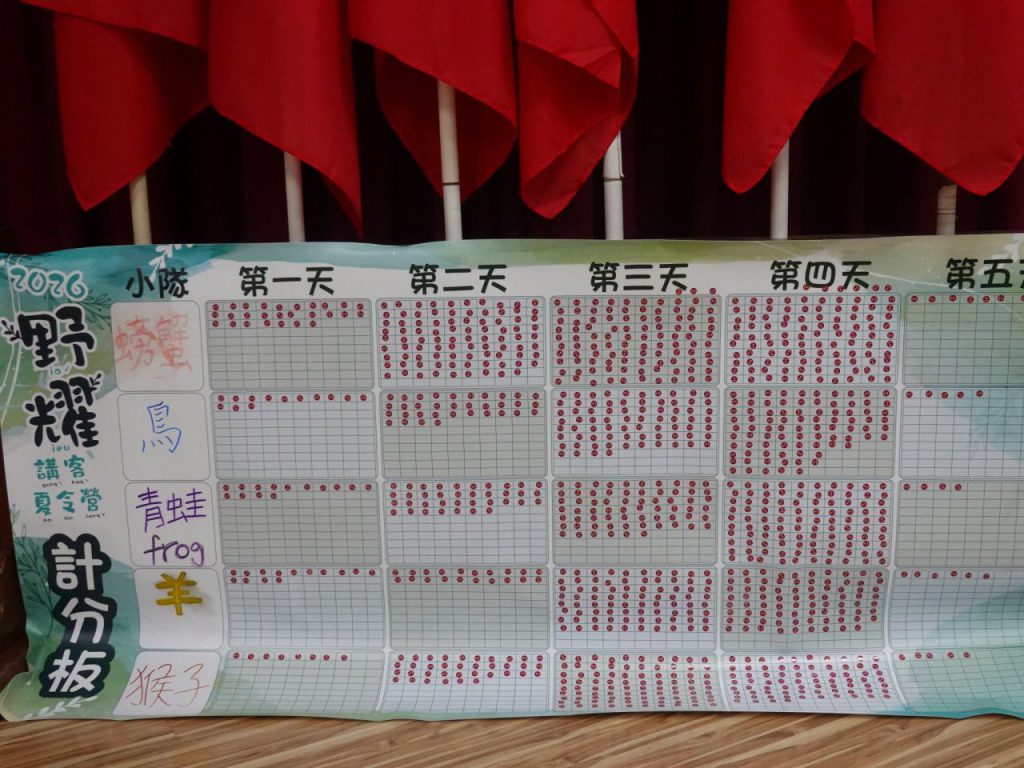 2026
野
耀
講客
夏令營
計
分
板
小隊 第一天 第二天 第三天 第四天 第五天
螃蟹
鳥
青蛙
frog
羊
猴子